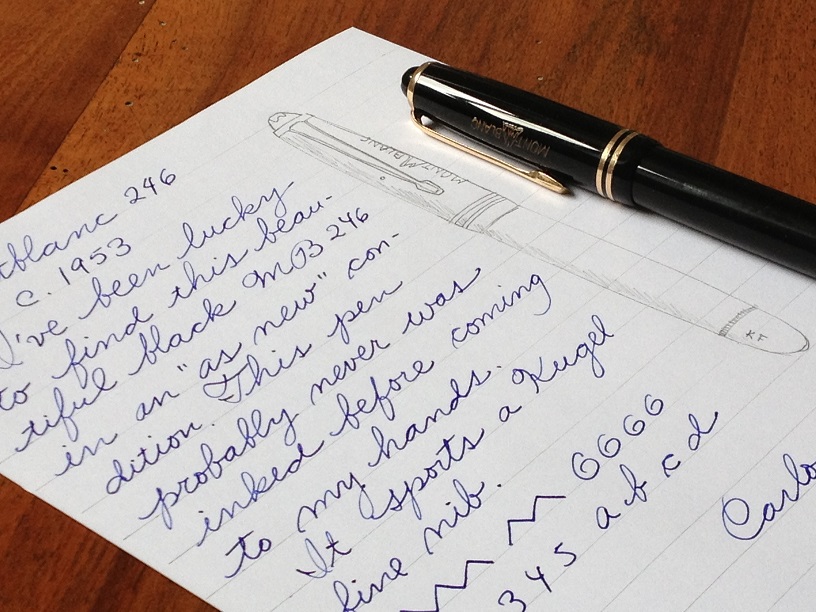 tblanc 246
c. 1953
I've been lucky
to find this beau-
tiful black MB 246
in an "as new" con-
dition. This pen
probably never was
inked before coming
to my hands.
It sports a Kugel
fine nib.
6666
345 abcd
Carlo
MONTBLANC
KF
MONTBLANC